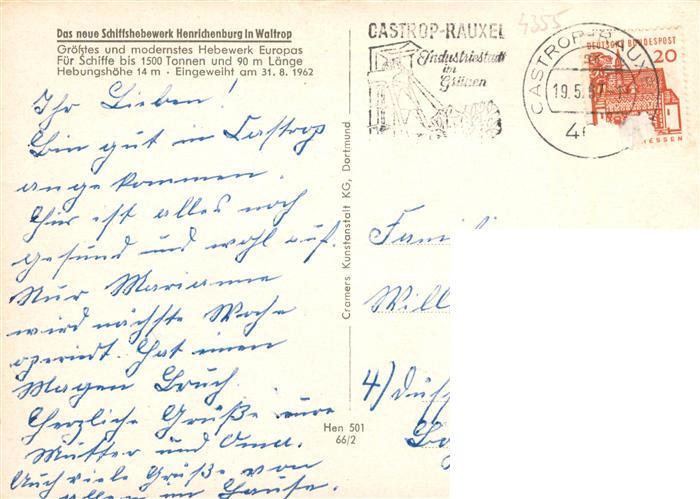 Das neue Schiffshebewerk Henrichenburg in Waltrop
Größtes und modernstes Hebewerk Europas
Für Schiffe bis 1500 Tonnen und 90 m Länge
Hebungshöhe 14 m · Eingeweiht am 31. 8. 1962
Ihr Lieben!
Bin gut in Castrop
angekommen.
Hier ist alles noch
gesund und wohl auf.
Nur Marianne
wird nächste Woche
operiert. Hat einen
Magen Bruch.
Herzliche Grüße eure
Mutter und Oma.
Auch viele Grüße von
allen im Hause.
Cramers Kunstanstalt KG, Dortmund
Hen 501
66/2
4355
CASTROP-RAUXEL
Industriestadt
im
Grünen
CASTROP-RAUX
19.5.67
DEUTSCHE BUNDESPOST
20
HESSEN
Fami
Will
4) Düss